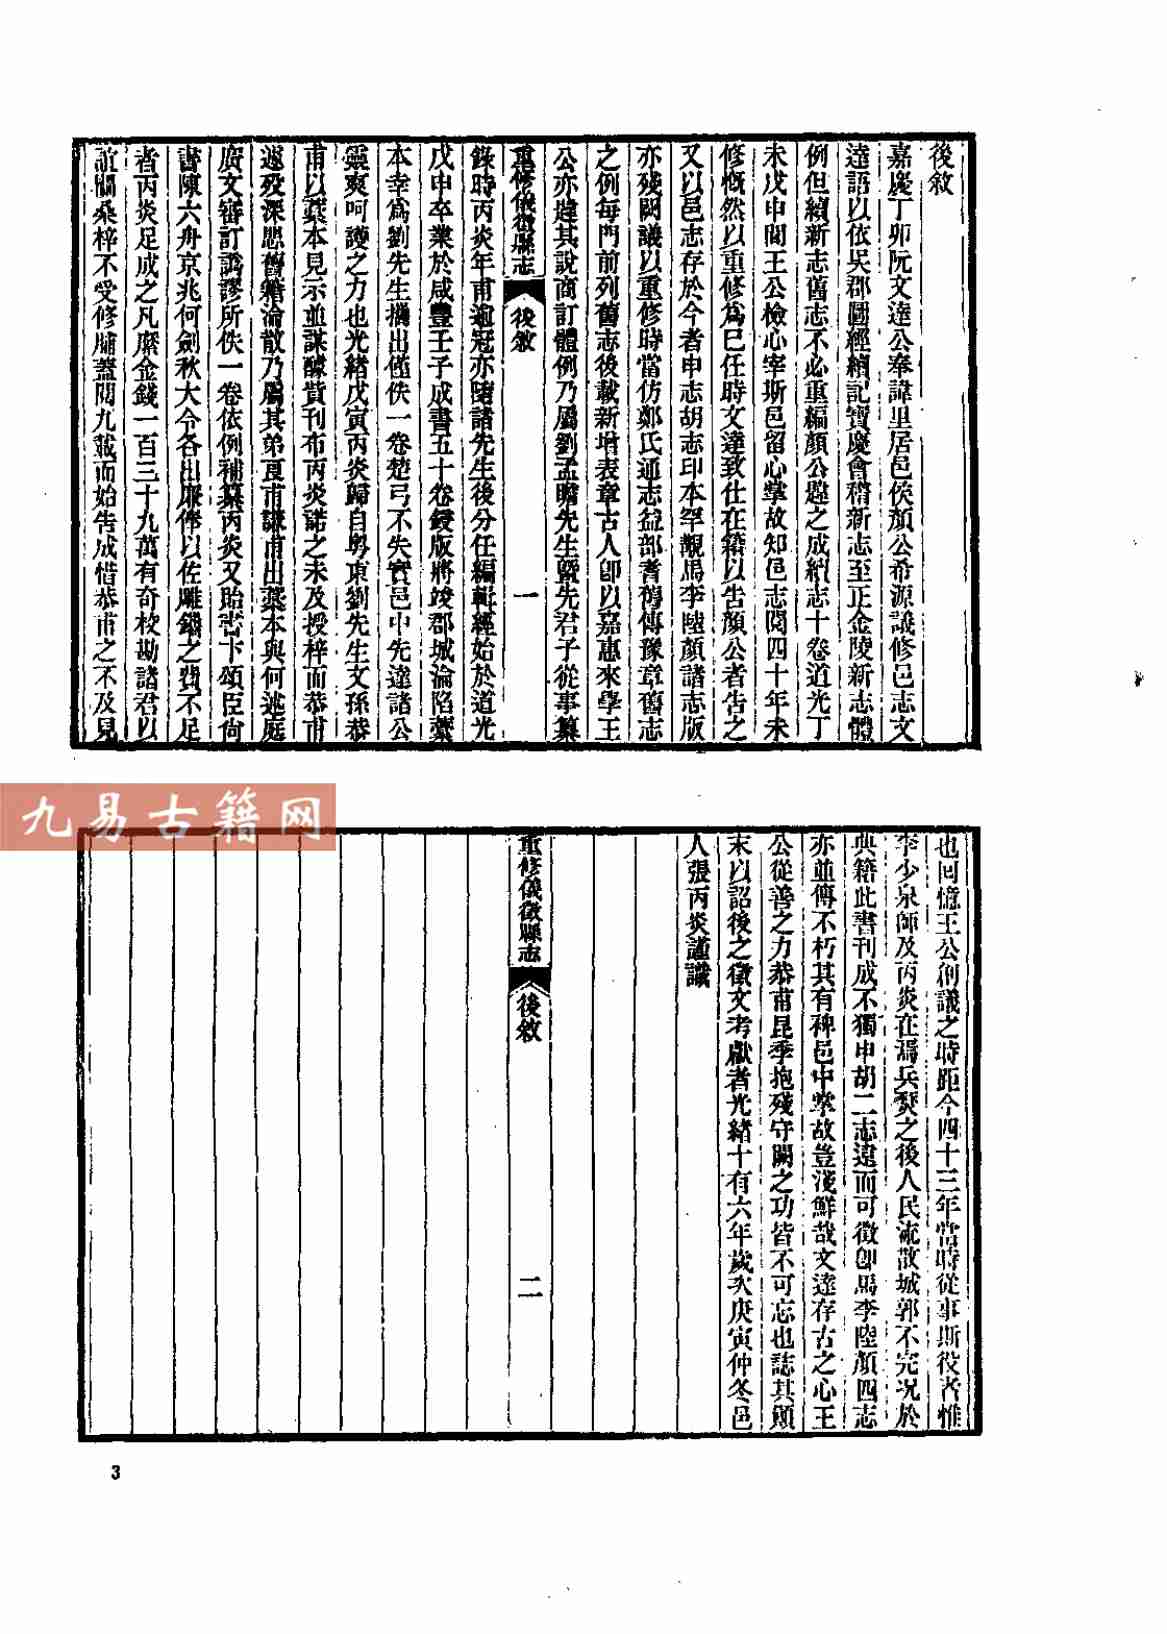 後敘
嘉慶丁卯阮文達公奉諱里居邑侯顏公希源議修邑志文
達語以依吳郡圖經續記寶慶會稽新志至正金陵新志體
例但續新志舊志不必重編顏公韙之成續志十卷道光丁
未戊申間王公檢心宰斯邑留心掌故知邑志閱四十年未
修慨然以重修爲己任時文達致仕在籍以告顏公者告之
又以邑志存於今者申志胡志印本罕覯馬李陸顏諸志版
亦殘闕議以重修時當仿鄭氏通志益部耆舊傳豫章舊志
之例每門前列舊志後載新增表章古人卽以嘉惠來學王
公亦韙其說商訂體例乃屬劉孟瞻先生暨先君子從事纂
重修儀徵縣志 後敘 一
錄時丙炎年甫逾冠亦隨諸先生後分任編輯經始於道光
戊申卒業於咸豐壬子成書五十卷鋟版將竣郡城淪陷藁
本幸爲劉先生攜出僅佚一卷楚弓不失實邑中先達諸公
靈爽呵護之力也光緒戊寅丙炎歸自粵東劉先生文孫恭
甫以藁本見示並謀醵貲刊布丙炎諾之未及授梓而恭甫
遽歿深思舊籍淪散乃屬其弟良甫謙甫出藁本與何述庭
廣文審訂譌謬所佚一卷依例補纂丙炎又貽書卞頌臣尙
書陳六舟京兆何劍秋大令各出廉俸以佐雕鐫之費不足
者丙炎足成之凡縻金錢一百三十九萬有奇校勘諸君以
誼關桑梓不受修脯蓋閱九載而始告成惜恭甫之不及見
也回憶王公創議之時距今四十三年當時從事斯役者惟
李少泉師及丙炎在焉兵燹之後人民流散城郭不完況於
典籍此書刊成不獨申胡二志遠而可徵卽馬李陸顏四志
亦並傳不朽其有裨邑中掌故豈淺鮮哉文達存古之心王
公從善之力恭甫昆季抱殘守闕之功皆不可忘也誌其顚
末以詔後之徵文考獻者光緒十有六年歲次庚寅仲冬邑
人張丙炎謹識
重修儀徵縣志 後敘 二
九易古籍网
3